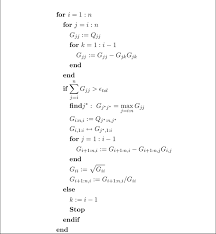 for i = 1 : n
for j = i : n
G_{jj} := Q_{jj}
for k = 1 : i − 1
G_{jj} := G_{jj} − G_{jk}G_{jk}
end
end
if \sum_{j=i}^{n} G_{jj} > ϵ_{tol}
find j* : G_{j*j*} = max_{j=i:n} G_{jj}
G_{i:n,i} := Q_{i:n,j*}
G_{i,1:i} ↔ G_{j*,1:i}
for j = 1 : i − 1
G_{i+1:n,i} := G_{i+1:n,i} − G_{i+1:n,j}G_{i,j}
end
G_{ii} := \sqrt{G_{ii}}
G_{i+1:n,i} := G_{i+1:n,i}/G_{ii}
else
k := i − 1
Stop
endif
end